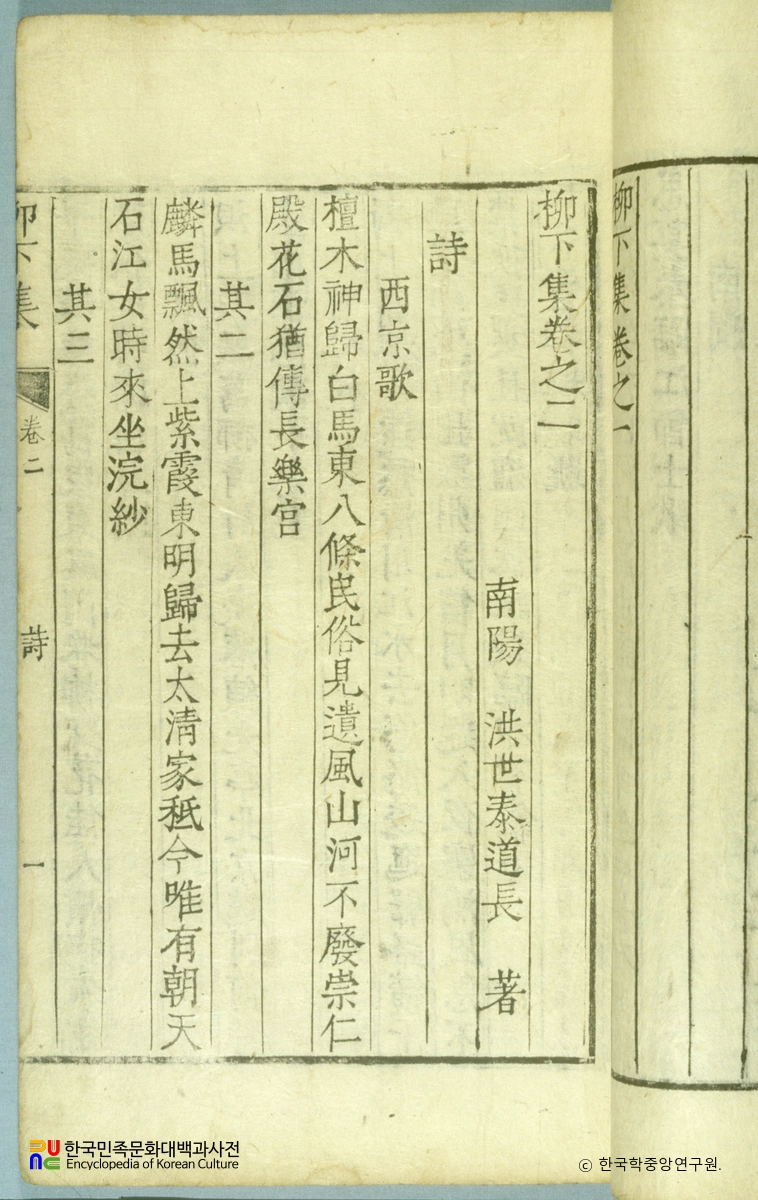 柳下集卷之一
柳下集卷之二
南陽 洪世泰道長 著
詩
西京歌
檀木神歸白馬東八條民俗見遺風山河不廢崇仁
殿花石猶傳長樂宮
其二
麟馬飄然上紫霞東明歸去太清家秪今唯有朝天
石江女時來坐浣紗
其三
柳下集 卷二 詩 一
한국민족문화대백과사전
Encyclopedia of Korean Culture
ⓒ 한국학중앙연구원.